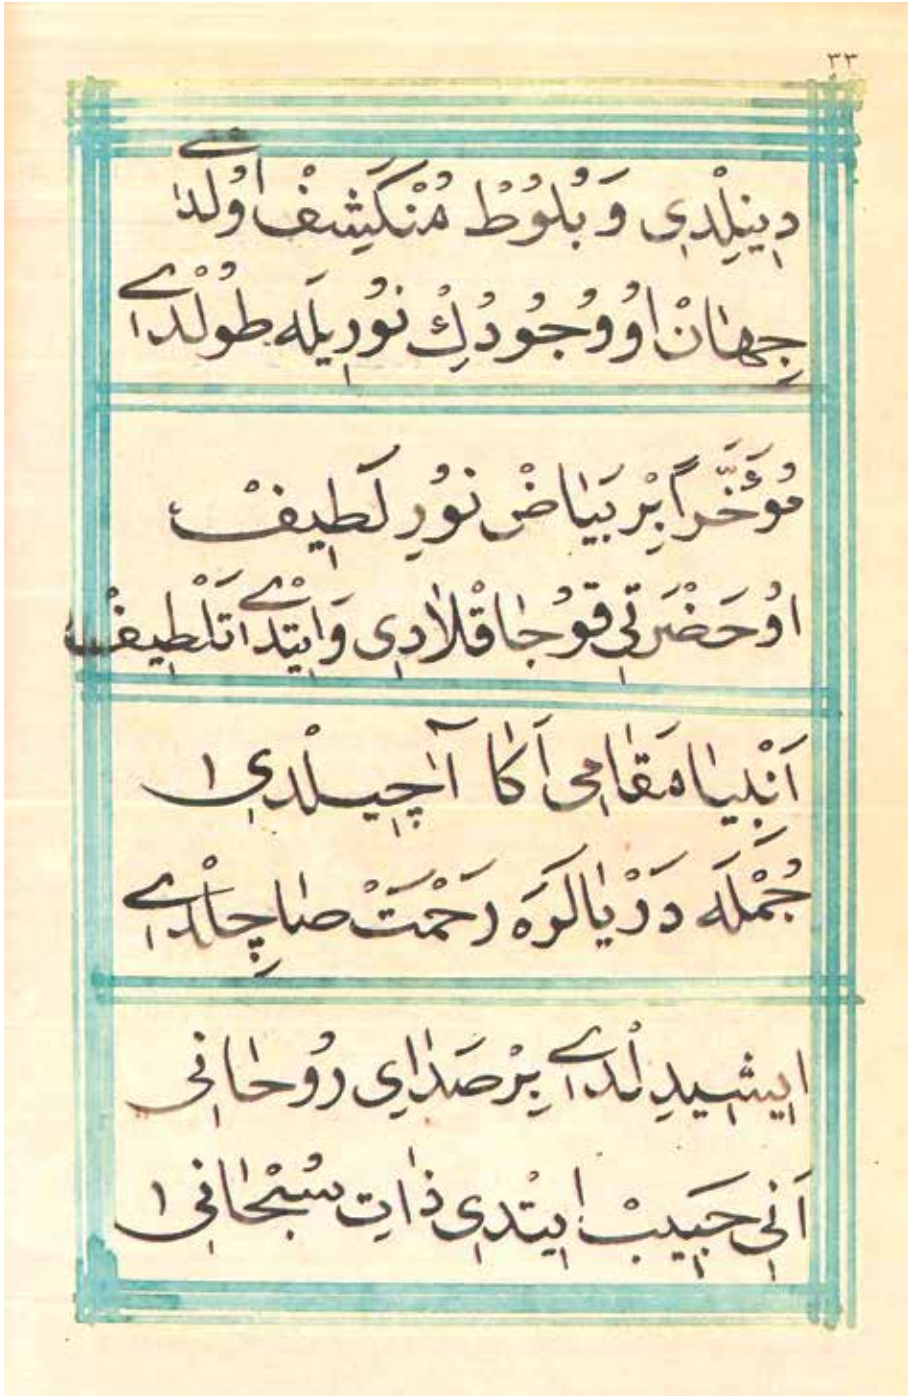 ٣٣
دِينِلْدِى وَبُلُوطْ مُنْكَشِفْ اُولْدِى
جِهَانْ اُو وُجُودُكْ نُورِيلَه طُولْدِى
مُؤَخَّراً بِرْ بَيَاضْ نُورِ لَطِيفْ
اُو حَضْرَتِى قُوجَاقْلَادِى وَايتْدِى تَلْطِيفْ
اَنْبِيَا مَقَامِى اَكَا آچِيلْدِى
جُمْلَه دَرْيَالَرَه رَحْمَتْ صَاچِلْدِى
اِيشِيدِلْدِى بِرْ صَدَاىِ رُوحَانِى
اَنِى حَبِيبْ اِيتْدِى ذَاتِ سُبْحَانِى